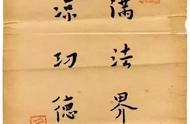 滿法界
涼功德